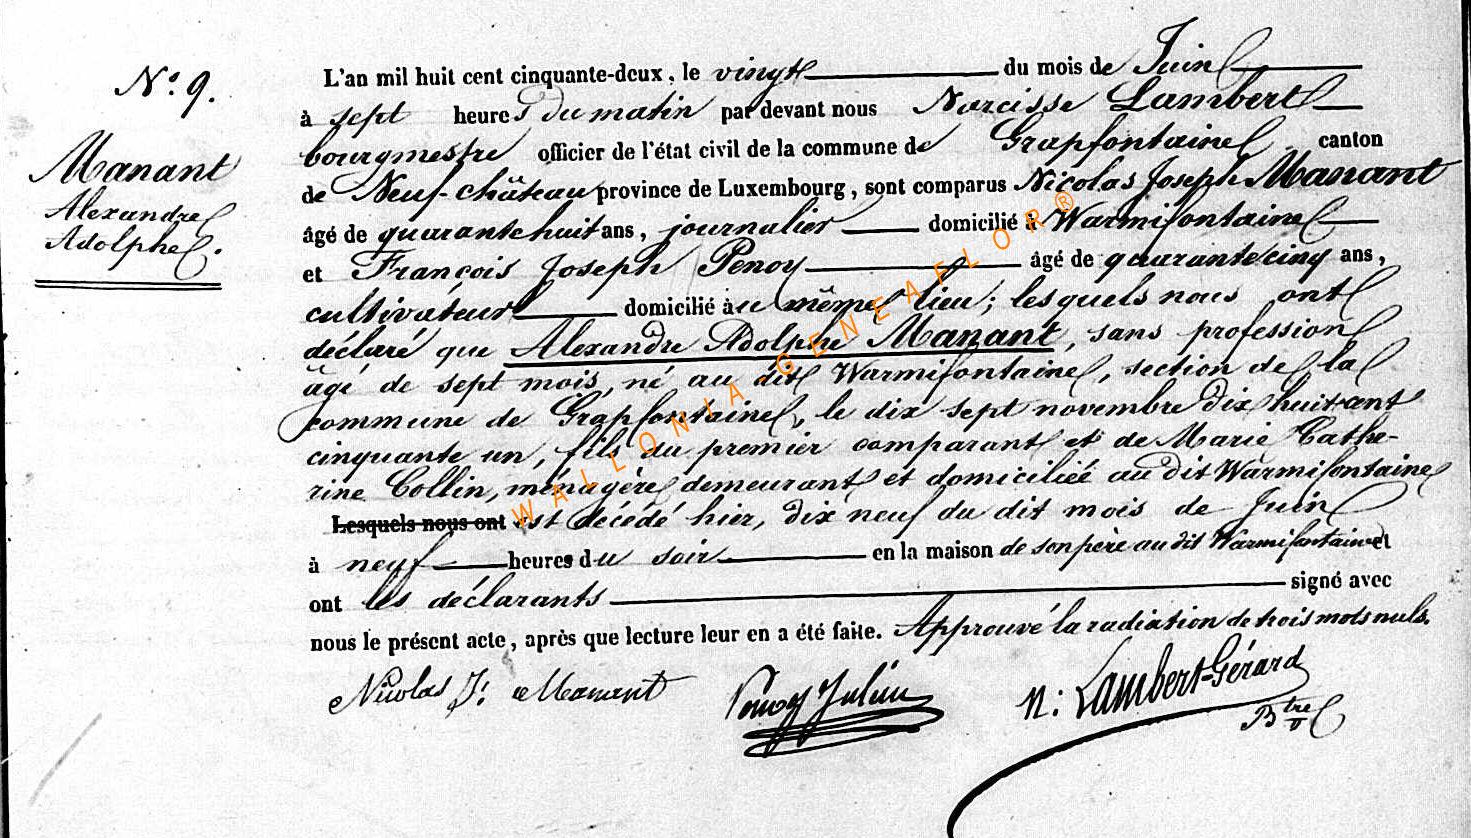 N.o 9.
Manant
Alexandre
Adolphe.
L'an mil huit cent cinquante-deux, le vingt du mois de Juin
à sept heures du matin par devant nous Narcisse Lambert
bourgmestre officier de l'état civil de la commune de Grapfontaine canton
de Neuf-château province de Luxembourg, sont comparus Nicolas Joseph Manant
âgé de quarantehuit ans, journalier domicilié à Warmifontaine
et François Joseph Penoy âgé de quarantecinq ans,
cultivateur domicilié à u même lieu; lesquels nous ont
déclaré que Alexandre Adolphe Manant, sans profession
âgé de sept mois, né au dit Warmifontaine, section de la
commune de Grapfontaine, le dix sept novembre dix huit cent
cinquante un, fils du premier comparant et de Marie Cathe-
rine Collin, ménagère demeurant et domiciliée au dit Warmifontaine
Lesquels nous ont est décédé hier, dix neuf du dit mois de Juin
à neuf heures du soir en la maison de son père au dit Warmifontaine et
ont les déclarants signé avec
nous le présent acte, après que lecture leur en a été faite. Approuvé la radiation de trois mots nuls.
Nicolas J. Manant Penoy N: Lambert-Gérard
Btre
WALLONIA GENEAFLOR®